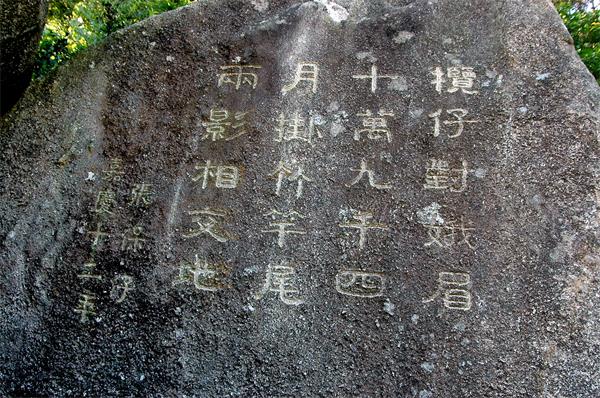 欖仔對娥眉
十萬九千四
月掛竹竿尾
兩影相交地
張保仔
嘉慶十三年